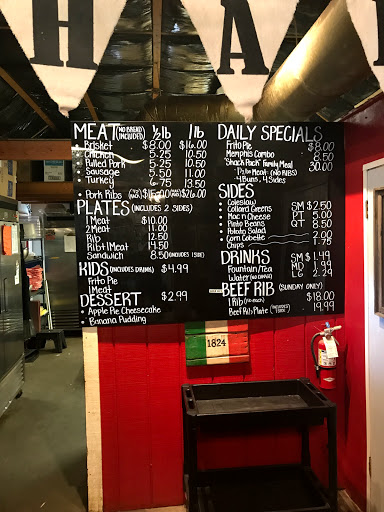 H A
MEAT (NO BREAD INCLUDED) 1/2 lb 1 lb
Brisket $8.00 $16.00
Chicken 5.25 10.50
Pulled Pork 5.25 10.50
Sausage 5.50 11.00
Turkey 6.75 13.50
Pork Ribs
PLATES (INCLUDES 2 SIDES)
1 Meat $10.00
2 Meat 11.00
Rib 12.50
Rib+1 Meat 14.50
Sandwich 8.50 (INCLUDES 1 SIDE)
KIDS (INCLUDES DRINK) $4.99
Frito Pie
1 Meat
DESSERT $2.99
Apple Pie Cheesecake
Banana Pudding
DAILY SPECIALS
Frito Pie $8.00
Memphis Combo 8.50
"Shack Pack" Family Meal 30.00
Meat (NO RIBS)
4 Buns, 4 Sides
SIDES
Coleslaw SM $2.50
Collard Greens PT 5.00
Mac n Cheese QT 8.50
Pinto Beans
Potato Salad
Corn Cobette 2.00
Chips 1.75
DRINKS SM $1.49
Fountain/Tea MD 1.99
Water (NO CHARGE) LG 2.29
BEEF RIB (SUNDAY ONLY)
1 Rib $18.00
Beef Rib Plate 19.99
1824